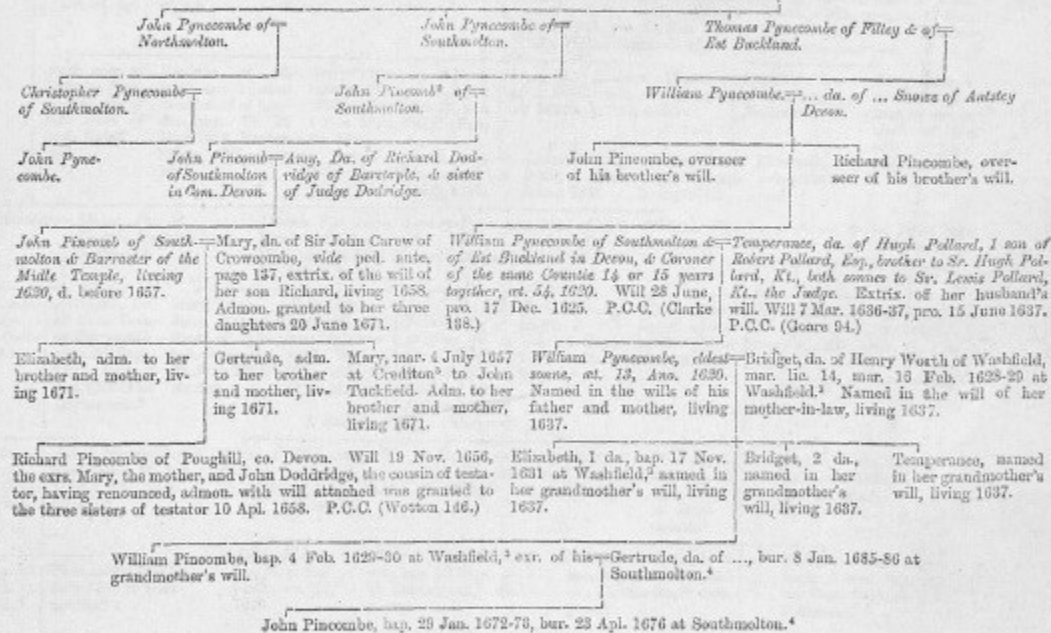 John Pynecombe of Northmolton.
John Pynecombe of Southmolton.
...
Thomas Pynecombe of Filley & of Est Buckland.
Christopher Pynecombe of Southmolton.
John Pincomb² of Southmolton.
William Pynecombe. ... da. of ... Snowe of Antstey Devon.
John Pynecombe.
John Pincomb of Southmolton in Com. Devon.
Amy, Da. of Richard Dodridge of Barstaple, & sister of Judge Dodridge.
John Pincombe, overseer of his brother's will.
Richard Pincombe, overseer of his brother's will.
John Pincomb of Southmolton & Barrester of the Midle Temple, liveing 1620, d. before 1657.
Mary, da. of Sir John Carew of Crowcombe, vide ped. ante, page 137, extrix. of the will of her son Richard, living 1658. Admon. granted to her three daughters 20 June 1671.
William Pynecombe of Southmolton & of Est Buckland in Devon, & Coroner of the same Countie 14 or 15 years together, æt. 54, 1620. Will 28 June, pro. 17 Dec. 1625. P.C.C. (Clarke 138.)
Temperance, da. of Hugh Pollard, 1 son of Robert Pollard, Esq., brother to Sr. Hugh Pollard, Kt., both sonnes to Sr. Lewis Pollard, Kt., the Judge. Extrix. off her husband's will. Will 7 Mar. 1636-37, pro. 15 June 1637. P.C.C. (Goare 94.)
Elizabeth, adm. to her brother and mother, living 1671.
Gertrude, adm. to her brother and mother, living 1671.
Mary, mar. 4 July 1657 at Crediton⁵ to John Tuckfield. Adm. to her brother and mother, living 1671.
William Pynecombe, eldest sonne, æt. 13, Ano. 1620. Named in the wills of his father and mother, living 1637.
Bridget, da. of Henry Worth of Washfield, mar. lic. 14, mar. 16 Feb. 1628-29 at Washfield.³ Named in the will of her mother-in-law, living 1637.
Richard Pincombe of Poughill, co. Devon. Will 19 Nov. 1656, the exrs. Mary, the mother, and John Doddridge, the cousin of testator, having renounced, admon. with will attached was granted to the three sisters of testator 10 Apl. 1658. P.C.C. (Wotton 146.)
Elizabeth, 1 da., bap. 17 Nov. 1631 at Washfield,³ named in her grandmother's will, living 1637.
Bridget, 2 da., named in her grandmother's will, living 1637.
Temperance, named in her grandmother's will, living 1637.
William Pincombe, bap. 4 Feb. 1629-30 at Washfield,³ exr. of his grandmother's will.
Gertrude, da. of ..., bur. 8 Jan. 1685-86 at Southmolton.⁴
John Pincombe, bap. 29 Jan. 1672-73, bur. 23 Apl. 1676 at Southmolton.⁴